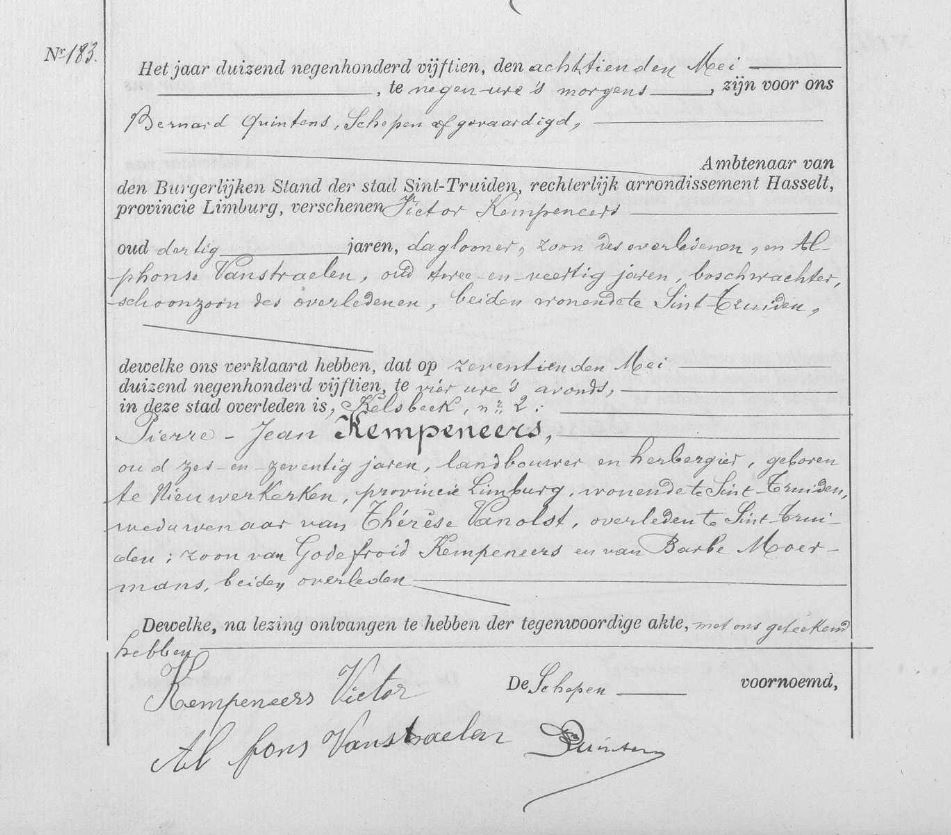 Nr 183.
Het jaar duizend negenhonderd vijftien, den achttienden Mei
, te negen ure 's morgens , zijn voor ons
Bernard Quintens, Schepen afgevaardigd,
Ambtenaar van
den Burgerlijken Stand der stad Sint-Truiden, rechterlijk arrondissement Hasselt,
provincie Limburg, verschenen Victor Kempeneers
oud dertig jaren, daglooner, zoon des overledenen, en Al-
phonse Vanstraelen, oud twee-en-veertig jaren, boschwachter,
schoonzoon des overledenen, beiden wonende te Sint-Truiden,
dewelke ons verklaard hebben, dat op zeventienden Mei
duizend negenhonderd vijftien, te vier ure 's avonds,
in deze stad overleden is, Kelsbeek, nr 2:
Pierre-Jean Kempeneers,
oud zes-en-zeventig jaren, landbouwer en herbergier, geboren
te Nieuwerkerken, provincie Limburg, wonende te Sint-Truiden,
weduwenaar van Thérèse Vanolst, overleden te Sint-Trui-
den; zoon van Godefroid Kempeneers en van Barbe Moer-
mans, beiden overleden
Dewelke, na lezing ontvangen te hebben der tegenwoordige akte, met ons geteekend
hebben
Kempeneers Victor
De Schepen voornoemd,
Alfons Vanstraelen
Quintens